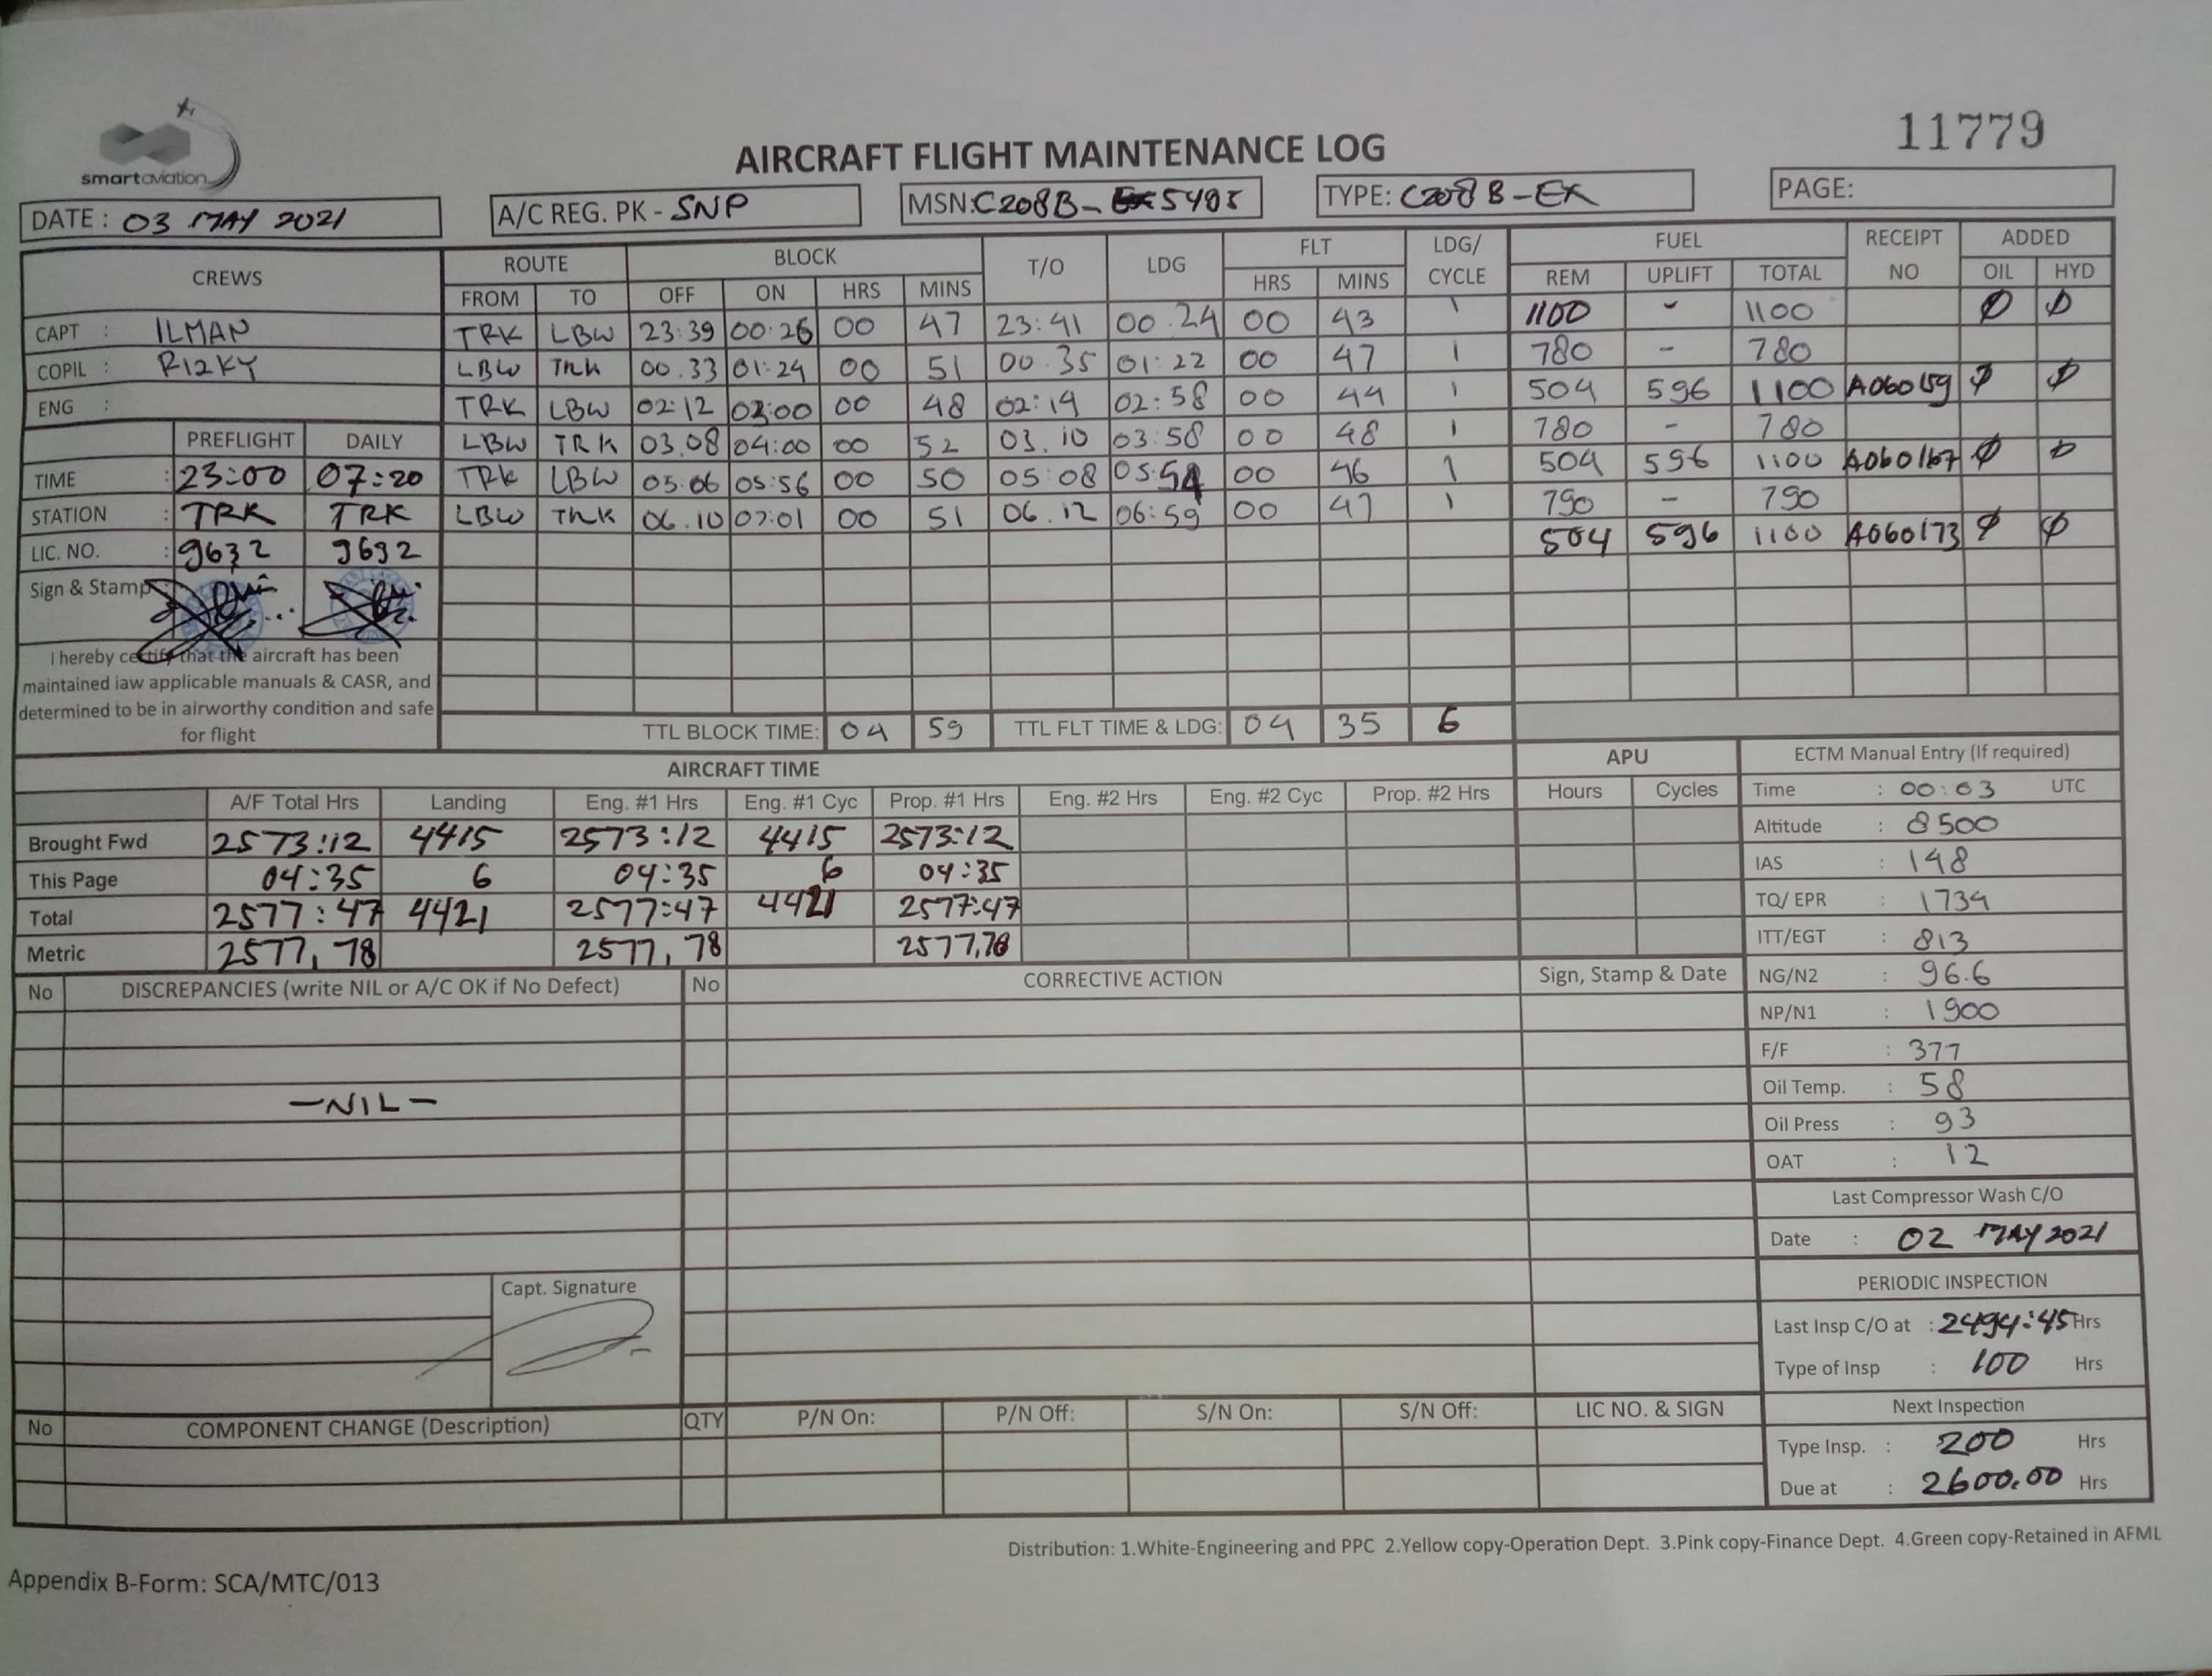 smartaviation
11779
AIRCRAFT FLIGHT MAINTENANCE LOG
DATE : 03 MAY 2021 A/C REG. PK - SNP MSN: C208B- 5495 TYPE: C208B-EX PAGE:
CREWS ROUTE BLOCK T/O LDG FLT LDG/ CYCLE FUEL RECEIPT NO ADDED
FROM TO OFF ON HRS MINS HRS MINS REM UPLIFT TOTAL OIL HYD
CAPT : ILMAN TRK LBW 23:39 00:26 00 47 23:41 00.24 00 43 1 1100 - 1100 Ø Ø
COPIL : RIZKY LBW TRK 00.33 01:24 00 51 00.35 01:22 00 47 1 780 - 780
ENG : TRK LBW 02:12 03:00 00 48 02:14 02:58 00 44 1 504 596 1100 A060159 Ø Ø
PREFLIGHT DAILY LBW TRK 03.08 04:00 00 52 03.10 03:58 00 48 1 780 - 780
TIME : 23:00 07:20 TRK LBW 05:06 05:56 00 50 05:08 05:54 00 46 1 504 596 1100 A060167 Ø Ø
STATION : TRK TRK LBW TRK 06.10 07:01 00 51 06.12 06:59 00 47 1 790 - 790
LIC. NO. : 9632 9632 504 596 1100 A060173 Ø Ø
Sign & Stamp
I hereby certify that the aircraft has been
maintained iaw applicable manuals & CASR, and
determined to be in airworthy condition and safe
for flight
TTL BLOCK TIME: 04 59 TTL FLT TIME & LDG: 04 35 6
AIRCRAFT TIME APU ECTM Manual Entry (If required)
A/F Total Hrs Landing Eng. #1 Hrs Eng. #1 Cyc Prop. #1 Hrs Eng. #2 Hrs Eng. #2 Cyc Prop. #2 Hrs Hours Cycles Time : 00:03 UTC
Brought Fwd 2573:12 4415 2573:12 4415 2573:12 Altitude : 8500
This Page 04:35 6 04:35 6 04:35 IAS : 148
Total 2577:47 4421 2577:47 4421 2577:47 TQ/ EPR : 1734
Metric 2577,78 2577,78 2577,78 ITT/EGT : 813
No DISCREPANCIES (write NIL or A/C OK if No Defect) No CORRECTIVE ACTION Sign, Stamp & Date NG/N2 : 96.6
NP/N1 : 1900
F/F : 377
-NIL- Oil Temp. : 58
Oil Press : 93
OAT : 12
Last Compressor Wash C/O
Date : 02 MAY 2021
Capt. Signature PERIODIC INSPECTION
Last Insp C/O at : 2494:45 Hrs
Type of Insp : 100 Hrs
No COMPONENT CHANGE (Description) QTY P/N On: P/N Off: S/N On: S/N Off: LIC NO. & SIGN Next Inspection
Type Insp. : 200 Hrs
Due at : 2600.00 Hrs
Distribution: 1.White-Engineering and PPC 2.Yellow copy-Operation Dept. 3.Pink copy-Finance Dept. 4.Green copy-Retained in AFML
Appendix B-Form: SCA/MTC/013